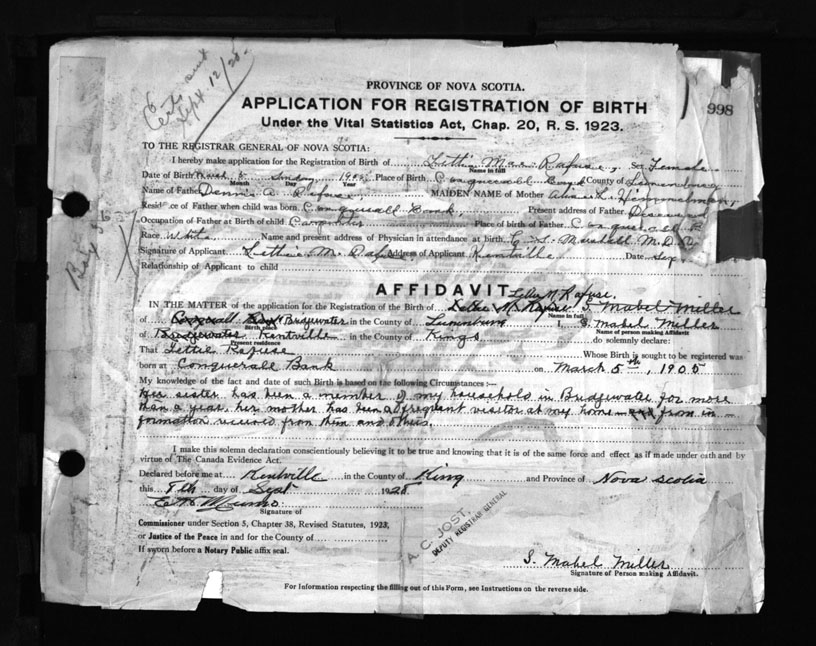 Certs sent
Sept 12/28
PROVINCE OF NOVA SCOTIA.
998
APPLICATION FOR REGISTRATION OF BIRTH
Under the Vital Statistics Act, Chap. 20, R. S. 1923.
TO THE REGISTRAR GENERAL OF NOVA SCOTIA:
I hereby make application for the Registration of Birth of Lettie Mae Rafuse, sex Female
Name in full
Date of Birth March 5 Sunday 1905 Place of Birth Conquerall Bank County of Lunenburg
Month Day Year
Name of Father Dennis A. Rafuse MAIDEN NAME of Mother Alma L. Himmelman
Residence of Father when child was born Conquerall Bank, Present address of Father Deceased
Occupation of Father at Birth of child Carpenter Place of birth of Father Conquerall B
Race White Name and present address of Physician in attendance at birth C. S. Marshall M.D.
Signature of Applicant Lettie M. Rafuse Address of Applicant Kentville Date Sep
Relationship of Applicant to child
AFFIDAVIT
IN THE MATTER of the application for the Registration of the Birth of Lettie M Rafuse S. Mabel Miller
Name in full
of Bridgewater in the County of Lunenburg I, S. Mabel Miller
Birth place Name of person making Affidavit
of Bridgewater Kentville in the County of Kings do solemnly declare:
Present residence
That Lettie Rafuse Whose Birth is sought to be registered was
born at Conquerall Bank on March 5th, 1905
My knowledge of the fact and date of such Birth is based on the following Circumstances:—
Her sister has been a member of my household in Bridgewater for more
than a year, her mother has been a frequent visitor at my home from in-
formation received from them and others.
I make this solemn declaration conscientiously believing it to be true and knowing that it is of the same force and effect as if made under oath and by
virtue of The Canada Evidence Act.
Declared before me at Kentville in the County of King and Province of Nova Scotia
this 8th day of Sept 1928
Munro
Signature of
Commissioner under Section 5, Chapter 38, Revised Statutes, 1923,
or Justice of the Peace in and for the County of
If sworn before a Notary Public affix seal.
A. C. JOST,
DEPUTY REGISTRAR GENERAL
S. Mabel Miller
Signature of Person making Affidavit.
For Information respecting the filling out of this Form, see Instructions on the reverse side.